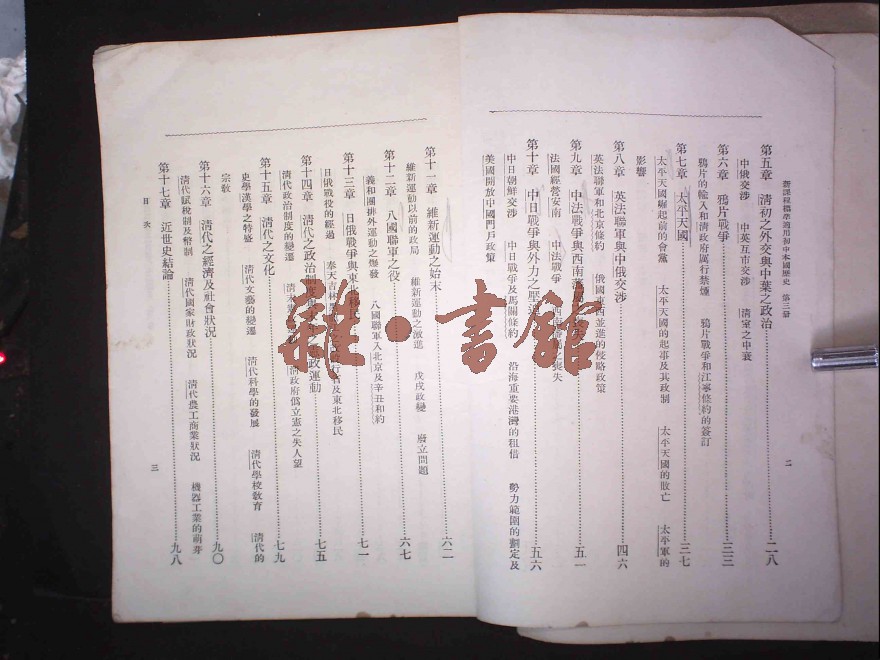 新課程標準適用初中本國歷史 第三册
二
第五章 清初之外交與中葉之政治……二八
中俄交涉 中英互市交涉 清室之中衰
第六章 鴉片戰爭……三三
鴉片的輸入和清政府厲行禁煙 鴉片戰爭和江寧條約的簽訂
第七章 太平天國……三七
太平天國崛起前的會黨 太平天國的起事及其政制 太平天國的敗亡 太平軍的
影響
第八章 英法聯軍與中俄交涉……四六
英法聯軍和北京條約 俄國東西並進的侵略政策
第九章 中法戰爭與西南藩屬……五一
法國經營安南 中法戰爭 喪失
第十章 中日戰爭與外力之壓迫……五六
中日朝鮮交涉 中日戰爭及馬關條約 沿海重要港灣的租借 勢力範圍的劃定及
美國開放中國門戶政策
第十一章 維新運動之始末……六二
維新運動以前的政局 維新運動之激進 戊戌政變 廢立問題
第十二章 八國聯軍之役……六七
義和團排外運動之爆發 八國聯軍入北京及辛丑和約
第十三章 日俄戰爭與東北移民……七一
日俄戰役的經過 奉天吉林 行省及東北移民
第十四章 清代之政治制度與 憲政運動……七五
清代政治制度的變遷 清末 清政府僞立憲之失人望
第十五章 清代之文化……七九
史學漢學之特盛 清代文藝的變遷 清代科學的發展 清代學校教育 清代的
宗教
第十六章 清代之經濟及社會狀況……九〇
清代賦稅制及幣制 清代國家財政狀況 清代農工商業狀況 機器工業的萌芽
第十七章 近世史結論……九八
目次
三
雜·書館